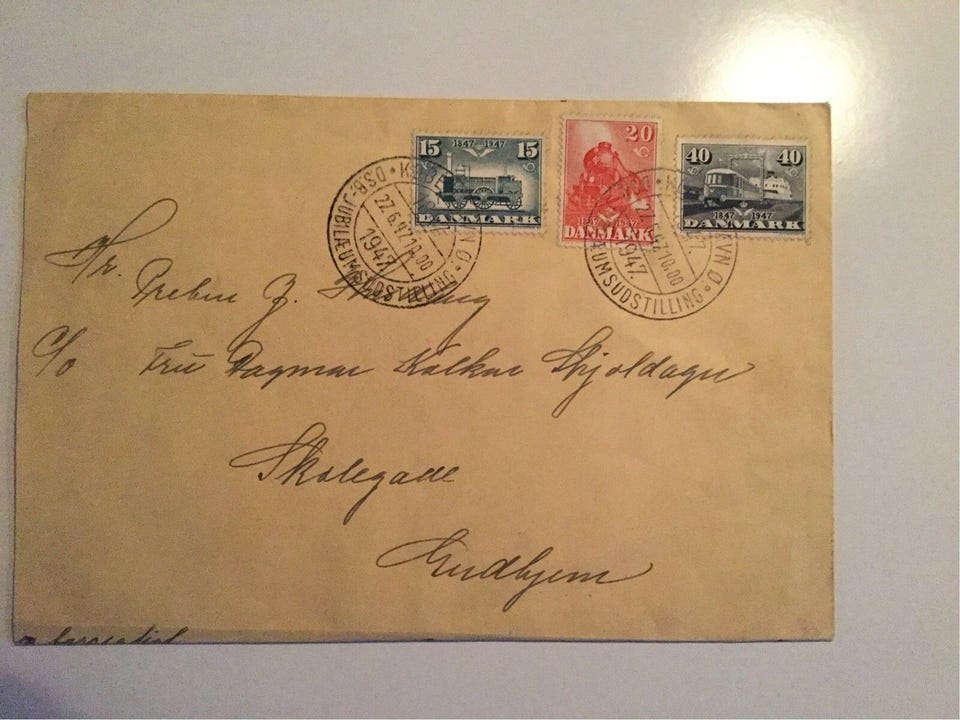 15 1847 1947 15
DANMARK
20
1847 1947
DANMARK
40 40
1847 1947
DANMARK
KØBENHAVN Ø.
27.6.47.10.00
1947.
D.S.B-JUBILÆUMSUDSTILLING
VN Ø.
47.10.00
1947.
ÆUMSUDSTILLING
Hr.
Preben J.
c/o Fru Dagmar Kalkar
Skolegade
Gudhjem